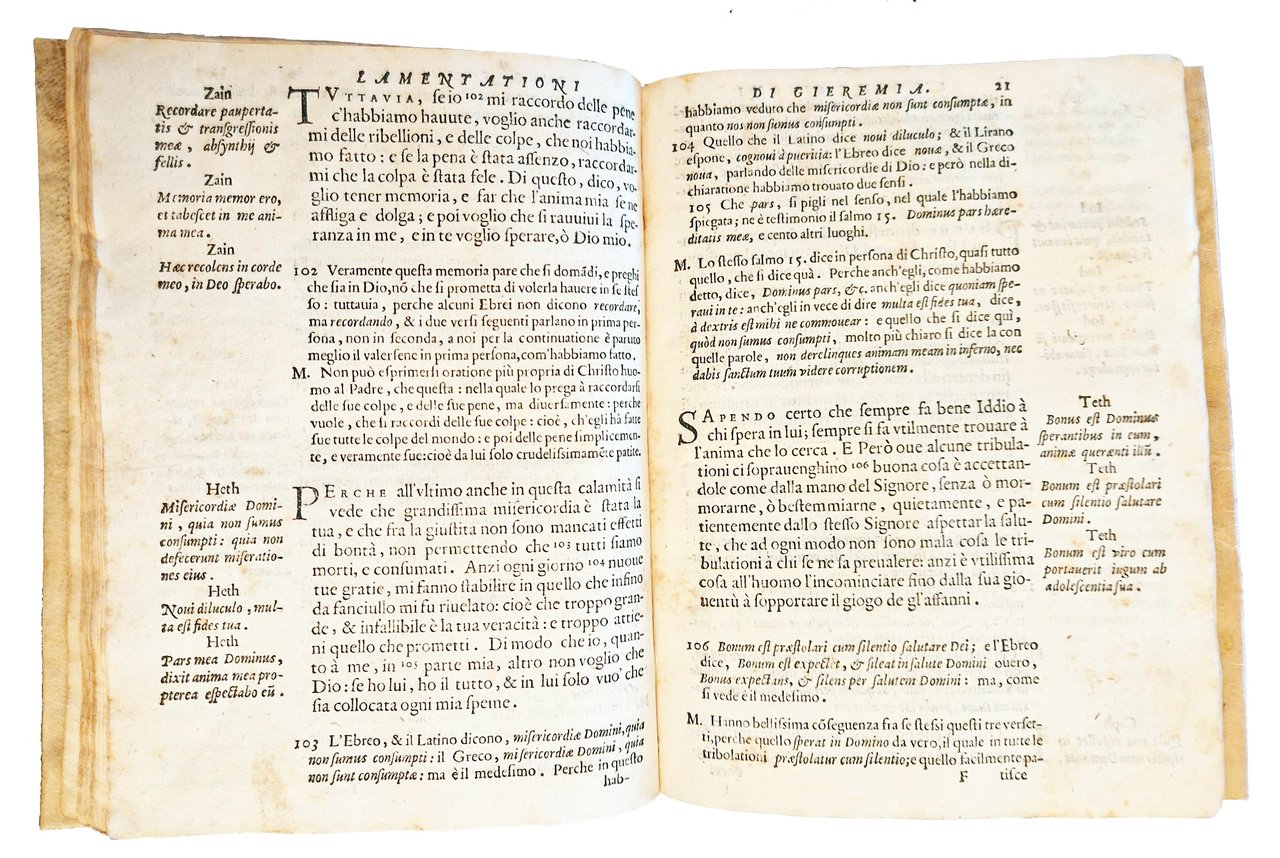 LAMENTATIONI
Zain
Recordare pauperta-
tis & transgressionis
meæ, absynthij &
fellis.
Zain
Memoria memor ero,
et tabescet in me ani-
ma mea.
Zain
Hæc recolens in corde
meo, in Deo sperabo.
TVTTAVIA, se io 102 mi raccordo delle pene
c'habbiamo hauute, voglio anche raccordar-
mi delle ribellioni, e delle colpe, che noi habbia-
mo fatto: e se la pena è stata assenzo, raccordar-
mi che la colpa è stata fele. Di questo, dico, vo-
glio tener memoria, e far che l'anima mia se ne
affliga e dolga; e poi voglio che si rauuiui la spe-
ranza in me, e in te voglio sperare, ò Dio mio.
102 Veramente questa memoria pare che si domãdi, e preghi
che sia in Dio, nõ che si prometta di volerla hauere in se stes
so: tuttauia, perche alcuni Ebrei non dicono recordare,
ma recordando, & i due versi seguenti parlano in prima per-
sona, non in seconda, a noi per la continuatione è paruto
meglio il valersene in prima persona, com'habbiamo fatto.
M. Non può esprimersi oratione più propria di Christo huo-
mo al Padre, che questa: nella quale lo prega à raccordarsi
delle sue colpe, e delle sue pene, ma diuersamente: perche
vuole, che si raccordi delle sue colpe: cioè, ch'egli hà fatte
sue tutte le colpe del mondo: e poi delle pene simplicemen-
te, e veramente sue: cioè da lui solo crudelissimamẽte patite.
Heth
Misericordiæ Domi-
ni, quia non sumus
consumpti: quia non
defecerunt miseratio-
nes eius.
Heth
Noui diluculo, mul-
ta est fides tua.
Heth
Pars mea Dominus,
dixit anima mea pro-
pterea espectabo eũ.
PERCHE all'vltimo anche in questa calamità si
vede che grandissima misericordia è stata la
tua, e che fra la giustitia non sono mancati effetti
di bontà, non permettendo che 103 tutti siamo
morti, e consumati. Anzi ogni giorno 104 nuoue
tue gratie, mi fanno stabilire in quello che infino
da fanciullo mi fu riuelato: cioè che troppo gran-
de, & infallibile è la tua veracità: e troppo attie-
ni quello che prometti. Di modo che io, quan-
to à me, in 105 parte mia, altro non voglio che
Dio: se ho lui, ho il tutto, & in lui solo vuo' che
sia collocata ogni mia speme.
103 L'Ebreo, & il Latino dicono, misericordiæ Domini, quia
non sumus consumpti: il Greco, misericordiæ Domini, quia
non sunt consumptæ: ma è il medesimo. Perche in questo
hab-
DI GIEREMIA. 21
habbiamo veduto che misericordiæ non sunt consumptæ, in
quanto nos non sumus consumpti.
104 Quello che il Latino dice noui diluculo; & il Lirano
espone, cognoui à pueritia: l'Ebreo dice nouæ, & il Greco
noua, parlando delle misericordie di Dio: e però nella di-
chiaratione habbiamo trouato due sensi.
105 Che pars, si pigli nel senso, nel quale l'habbiamo
spiegata; ne è testimonio il salmo 15. Dominus pars hære-
ditatis meæ, e cento altri luoghi.
M. Lo stesso salmo 15. dice in persona di Christo, quasi tutto
quello, che si dice quà. Perche anch'egli, come habbiamo
detto, dice, Dominus pars, &c. anch'egli dice quoniam spe-
raui in te: anch'egli in vece di dire multa est fides tua, dice,
à dextris est mihi ne commouear: e quello che si dice quì,
quòd non sumus consumpti, molto più chiaro si dice la con
quelle parole, non derelinques animam meam in inferno, nec
dabis sanctum tuum videre corruptionem.
SAPENDO certo che sempre fa bene Iddio à
chi spera in lui; sempre si fa vtilmente trouare à
l'anima che lo cerca. E Però oue alcune tribula-
tioni ci soprauenghino 106 buona cosa è accettan-
dole come dalla mano del Signore, senza ò mor-
morarne, ò bestemmiarne, quietamente, e pa-
tientemente dallo stesso Signore aspettar la salu-
te, che ad ogni modo non sono mala cosa le tri-
bulationi à chi se ne sa preualere: anzi è vtilissima
cosa all'huomo l'incominciare fino dalla sua gio-
uentù à sopportare il giogo de gl'affanni.
Teth
Bonus est Dominus
sperantibus in eum,
animæ quærenti illũ.
Teth
Bonum est præstolari
cum silentio salutare
Domini.
Teth
Bonum est viro cum
portauerit iugum ab
adolescentia sua.
106 Bonum est præstolari cum silentio salutare Dei; e l'Ebreo
dice, Bonum est expectet, & sileat in salute Domini ouero,
Bonus expectans, & silens per salutem Domini: ma, come
si vede è il medesimo.
M. Hanno bellissima cõseguenza fra se stessi questi tre verset-
ti, perche quello sperat in Domino da vero, il quale in tutte le
tribolationi præstolatur cum silentio; e quello facilmente pa-
F tisce